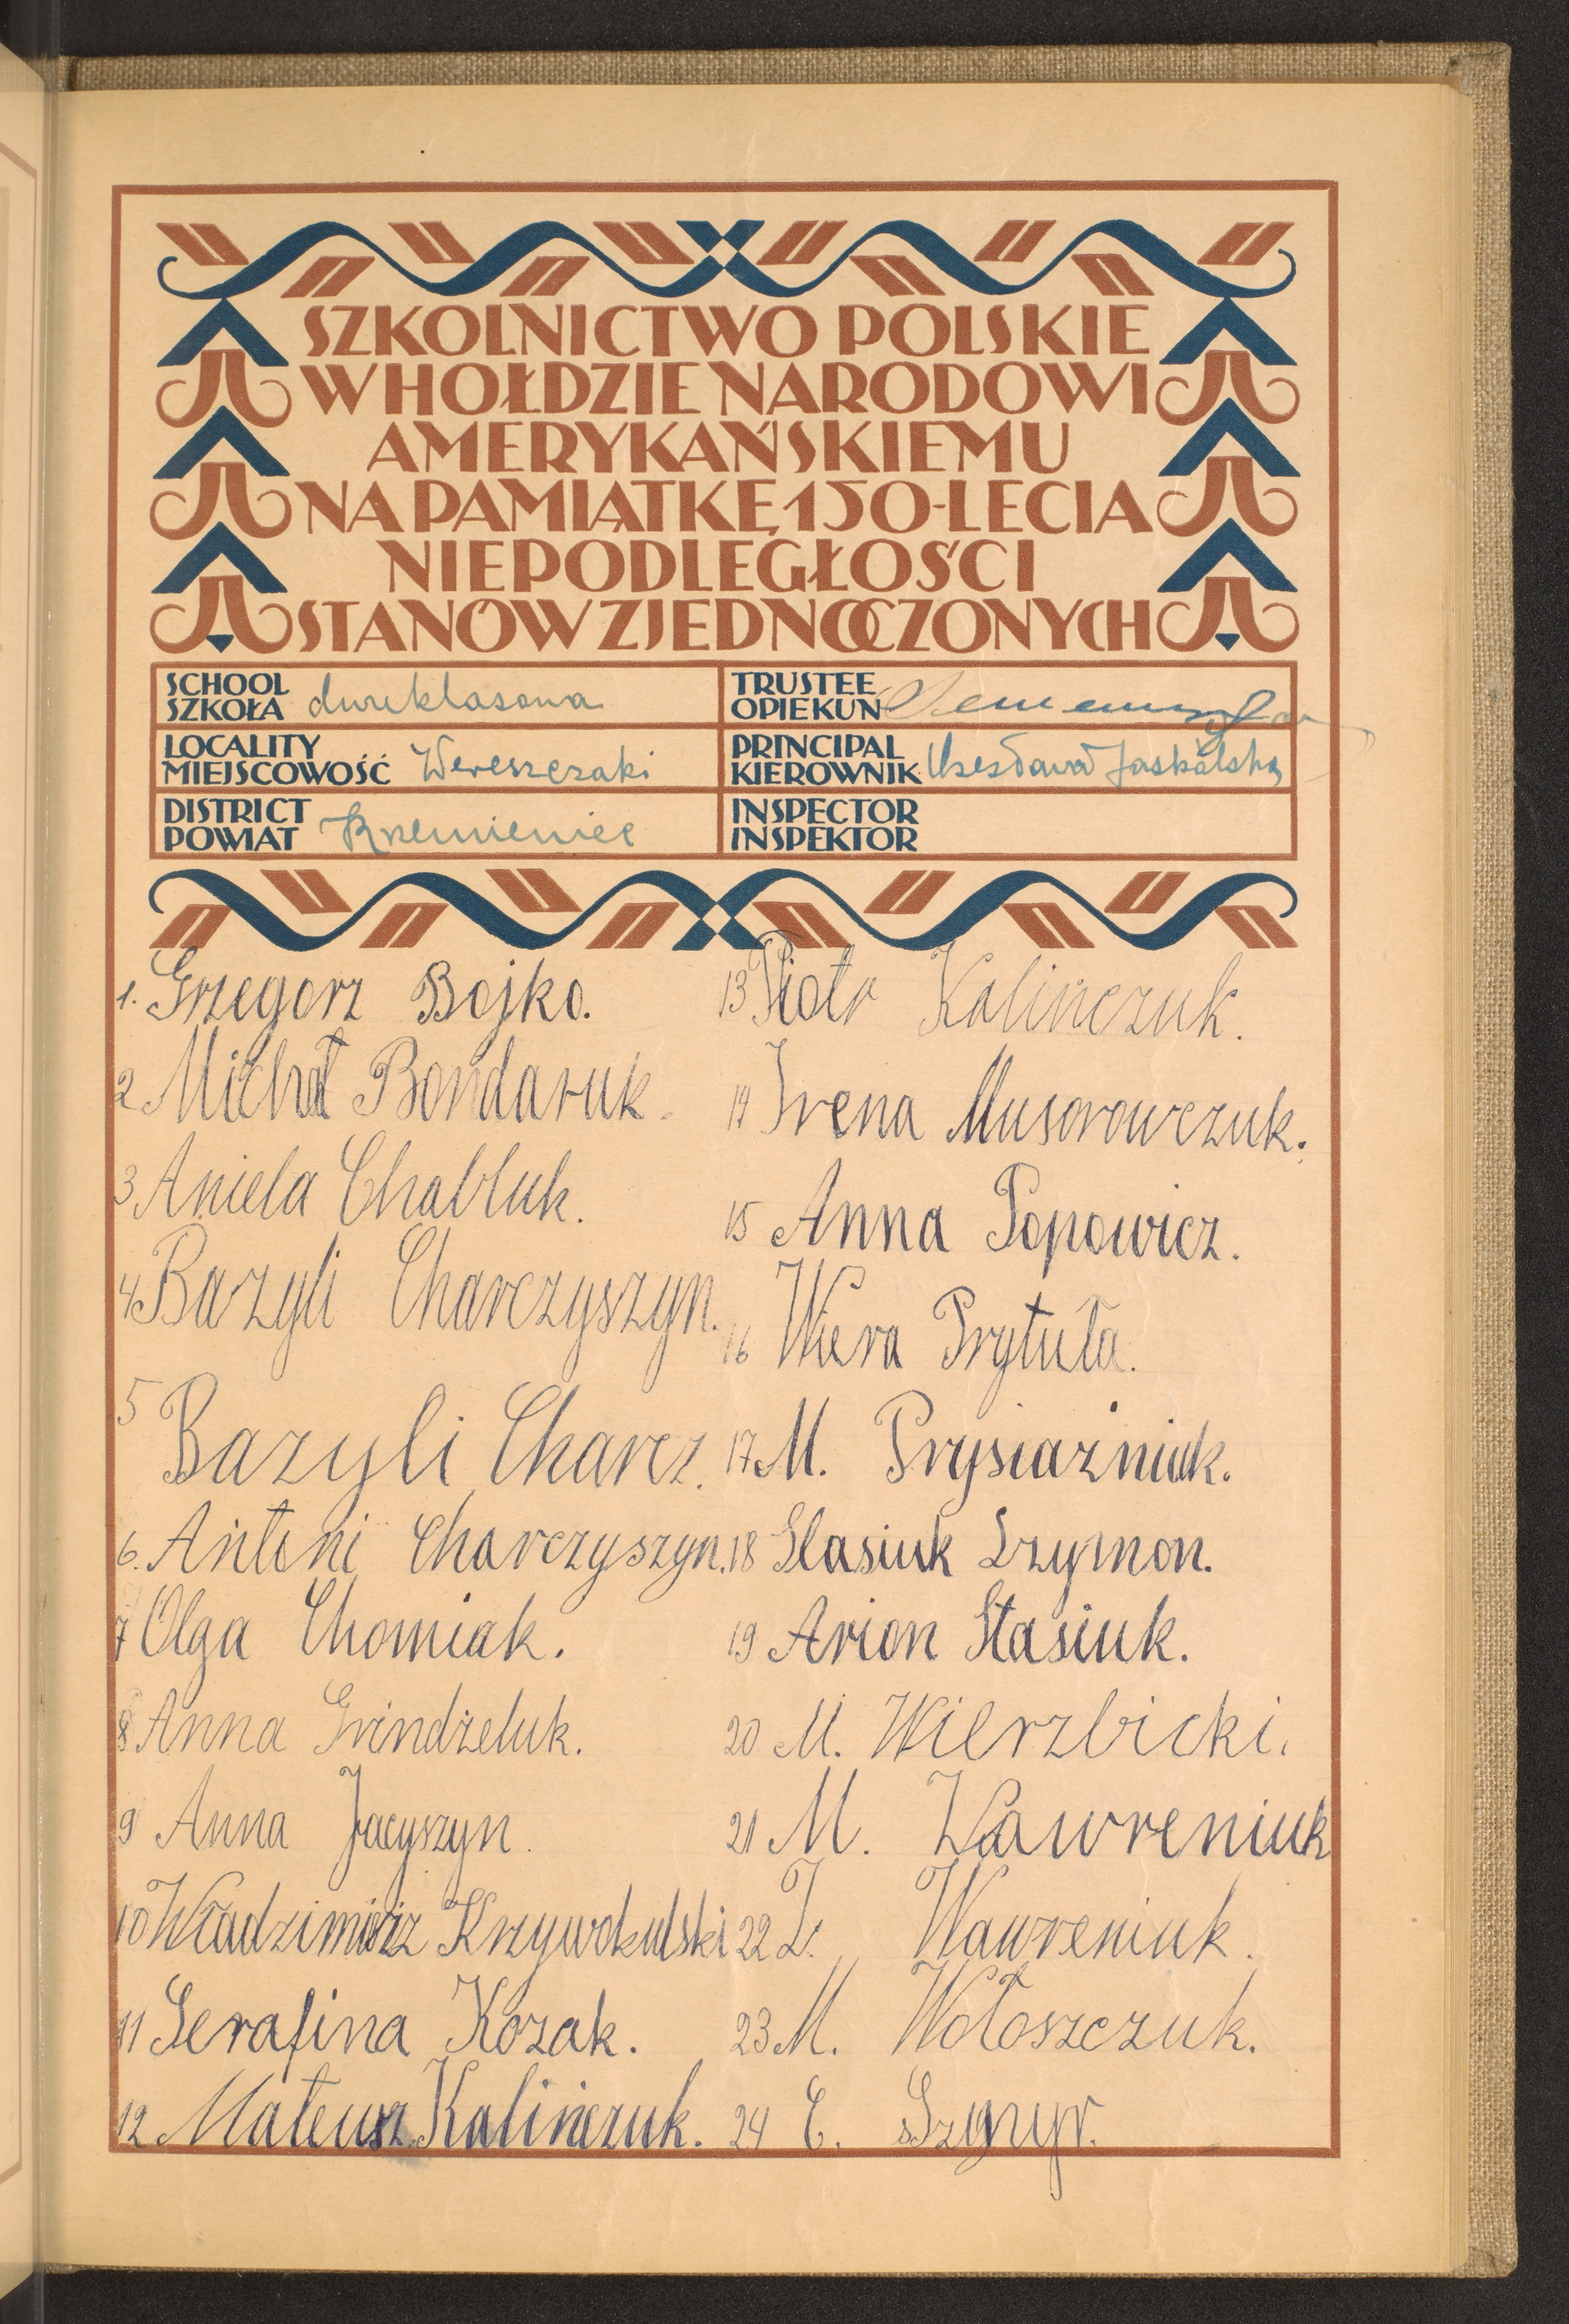 SZKOLNICTWO POLSKIE
W HOŁDZIE NARODOWI
AMERYKAŃSKIEMU
NA PAMIĄTKĘ 150-LECIA
NIEPODLEGŁOŚCI
STANÓW ZJEDNOCZONYCH
SCHOOL
SZKOŁA dwuklasowa
TRUSTEE
OPIEKUN
LOCALITY
MIEJSCOWOŚĆ Wereszczaki
PRINCIPAL
KIEROWNIK Jaskólska
DISTRICT
POWIAT Krzemieniec
INSPECTOR
INSPEKTOR
1. Grzegorz Bojko.
2 Michał Bondaruk.
3 Aniela Chabluk.
4 Bazyli Charczyszyn.
5 Bazyli Charcz.
6. Antoni Charczyszyn.
7 Olga Chomiak.
8 Anna Grindżeluk.
9 Anna Jacyszyn.
10 Krzywokulski
11 Serafina Kozak.
12 Mateusz Kalińczuk.
13 Piotr Kalińczuk.
14 Irena Musorowczuk.
15 Anna Popowicz.
16 Wiera Prytuła.
17 M. Prysiażniuk.
18 Stasiuk Szymon.
19 Arion Stasiuk.
20 M. Wierzbicki.
21 M. Wawreniuk
22 Wawreniuk.
23 M. Wołoszczuk.
24 E.